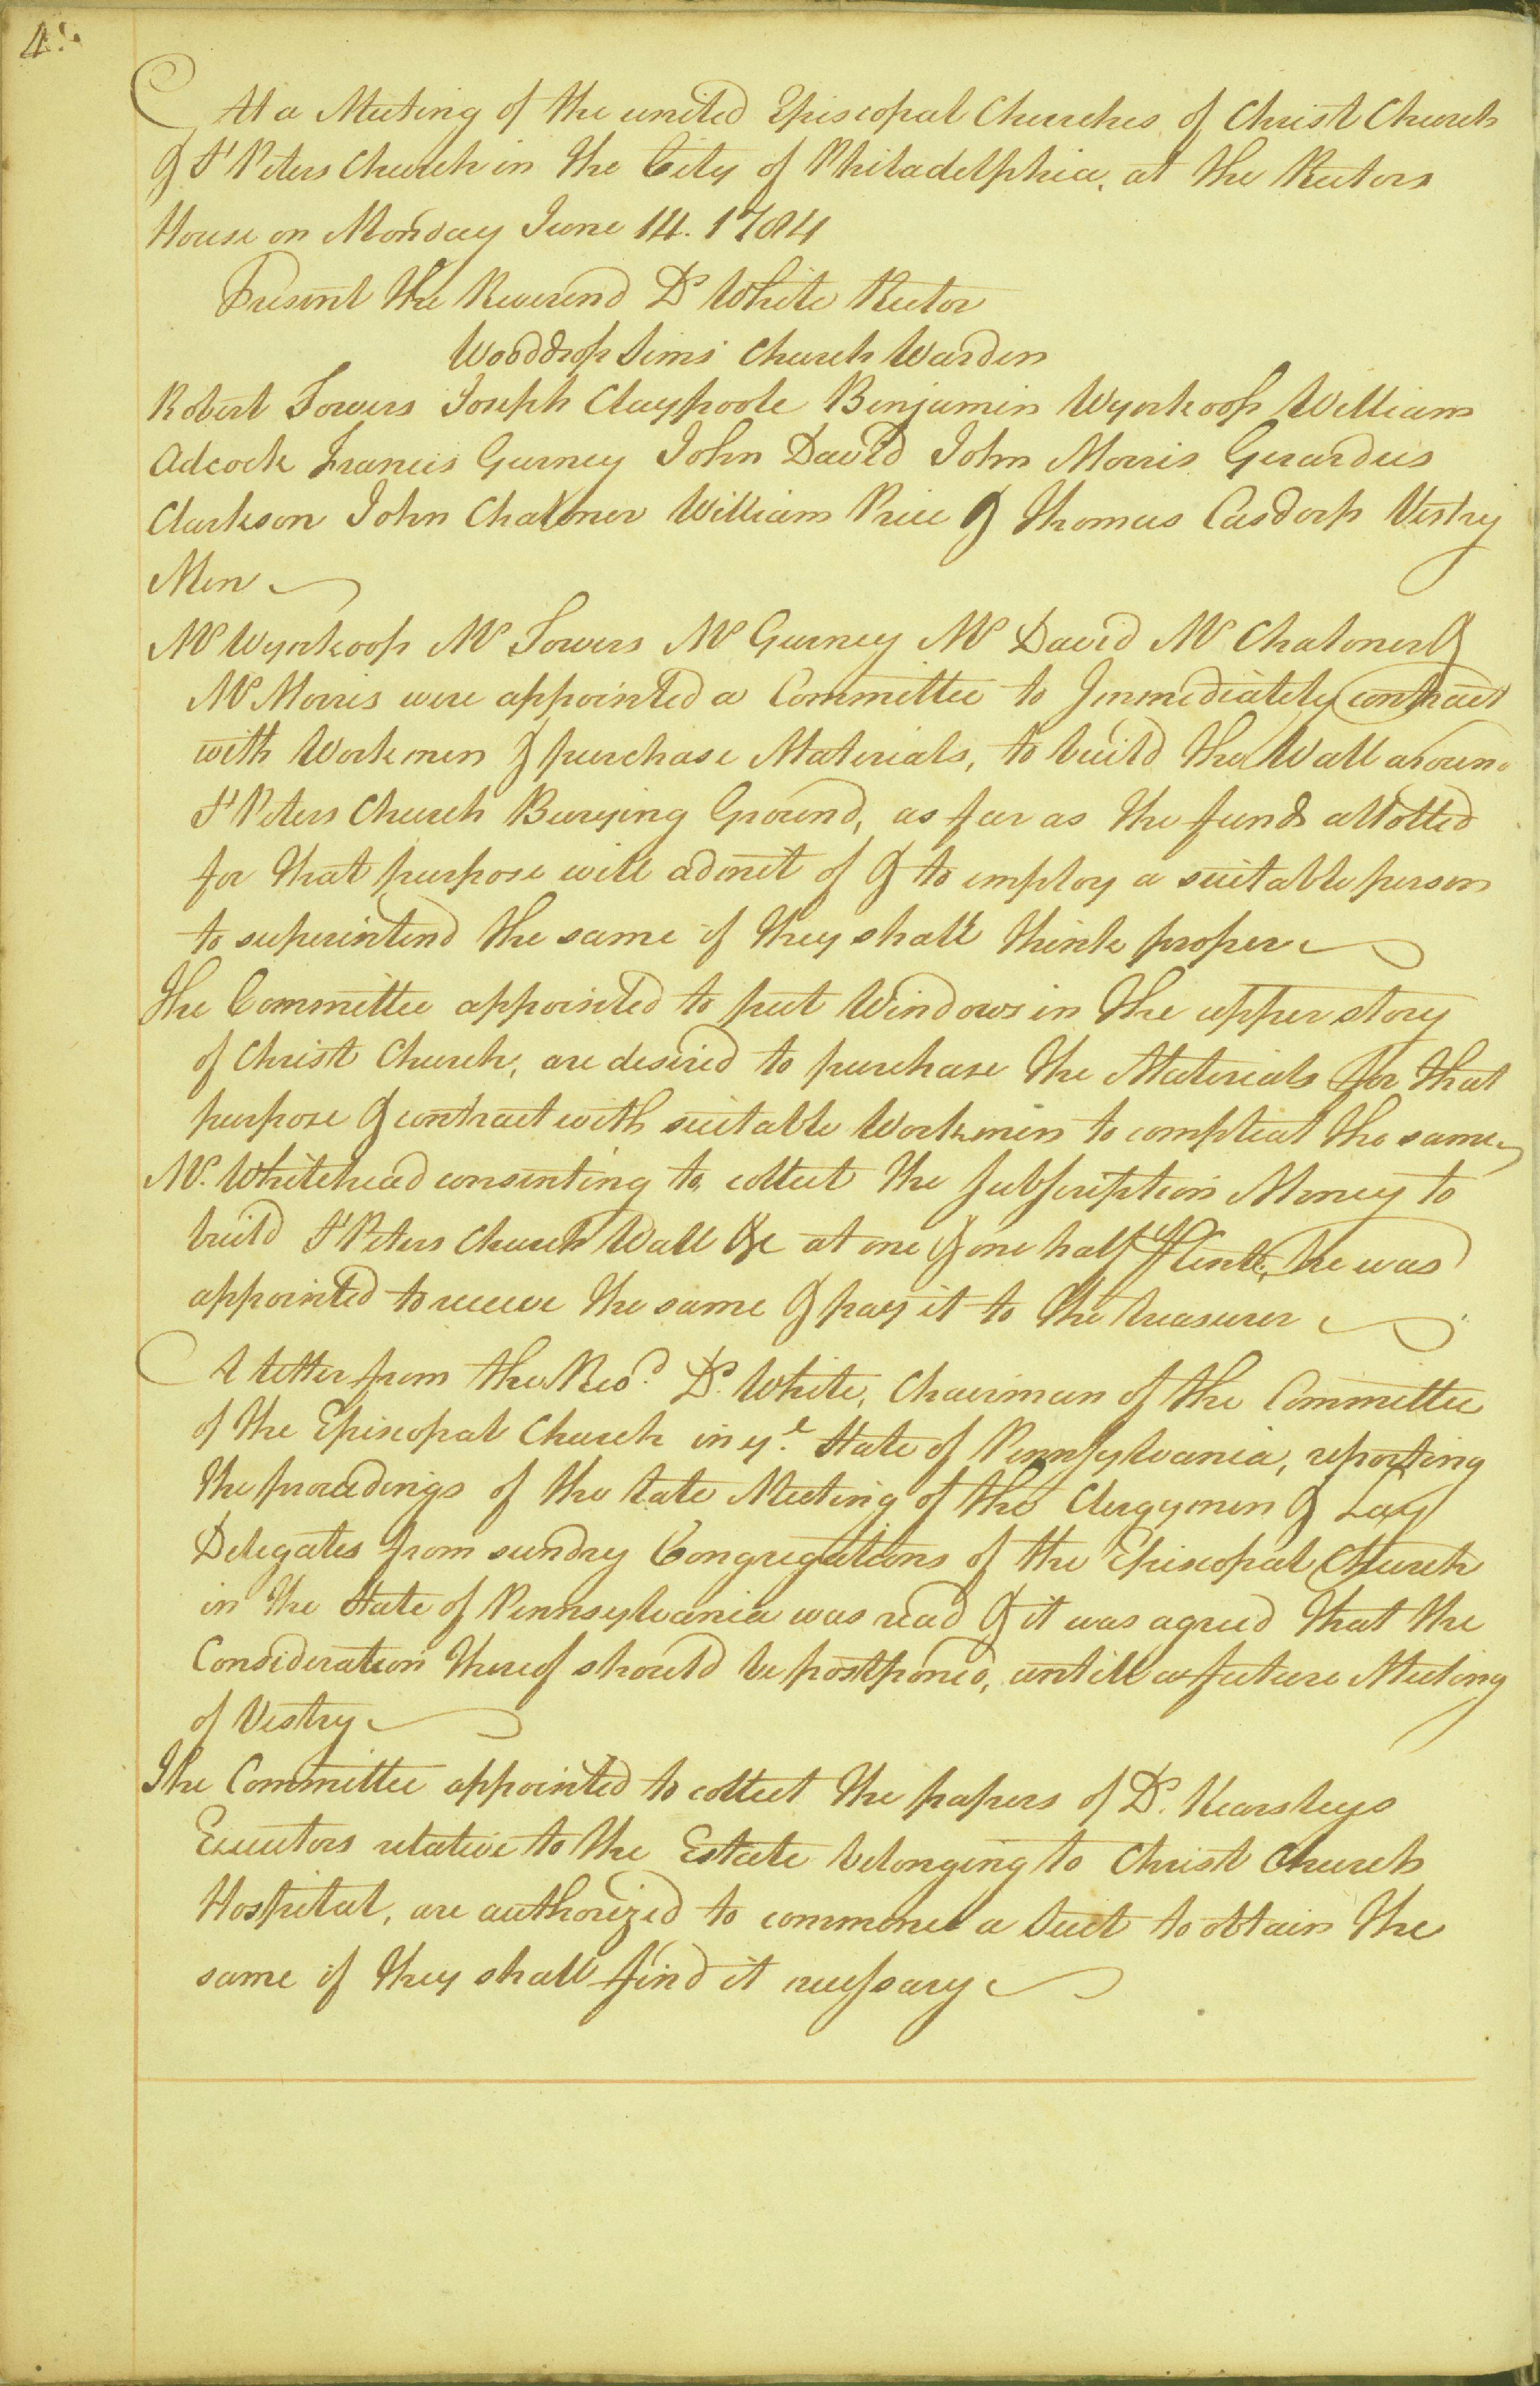 At a Meeting of the united Episcopal Churches of Christ Church
& St Peters Church in the City of Philadelphia, at the Rectors
House on Monday June 14. 1784
Present the Reverend Dr White Rector
Wooddrop Sims Church Warden
Robert Towers Joseph Claypoole Benjamin Wynkoop William
Adcock Francis Gurney John David John Morris Gerardus
Clarkson John Chaloner William Price & Thomas Casdorp Vestry
Men
Mr Wynkoop Mr Towers Mr Gurney Mr David Mr Chaloner &
Mr Morris were appointed a Committee to Immediately contract
with Workmen & purchase Materials, to build the Wall aroun
St Peters Church Burying Ground, as far as the funds allotted
for that purpose will admit of & to employ a suitable person
to superintend the same if they shall think proper
The Committee appointed to put Windows in the upper story
of Christ Church, are desired to purchase the Materials for that
purpose & contract with suitable Workmen to compleat the same
Mr. Whitehead consenting to collect the Subscription Money to
build St Peters Church Wall &c at one & one half Cent, he was
appointed to receive the same & pay it to the treasurer
A letter from the Revd. Dr. White, Chairman of the Committee
of the Episcopal Church in ye. State of Pennsylvania, reporting
the proceedings of the late Meeting of the Clergymen & Lay
Delegates from sundry Congregations of the Episcopal Church
in the State of Pennsylvania was read & it was agreed that the
Consideration thereof should be postponed, untill a future Meeting
of Vestry
The Committee appointed to collect the papers of Dr. Kearsleys
Executors relative to the Estate belonging to Christ Church
Hospital, are authorized to commence a Suit to obtain the
same if they shall find it necessary